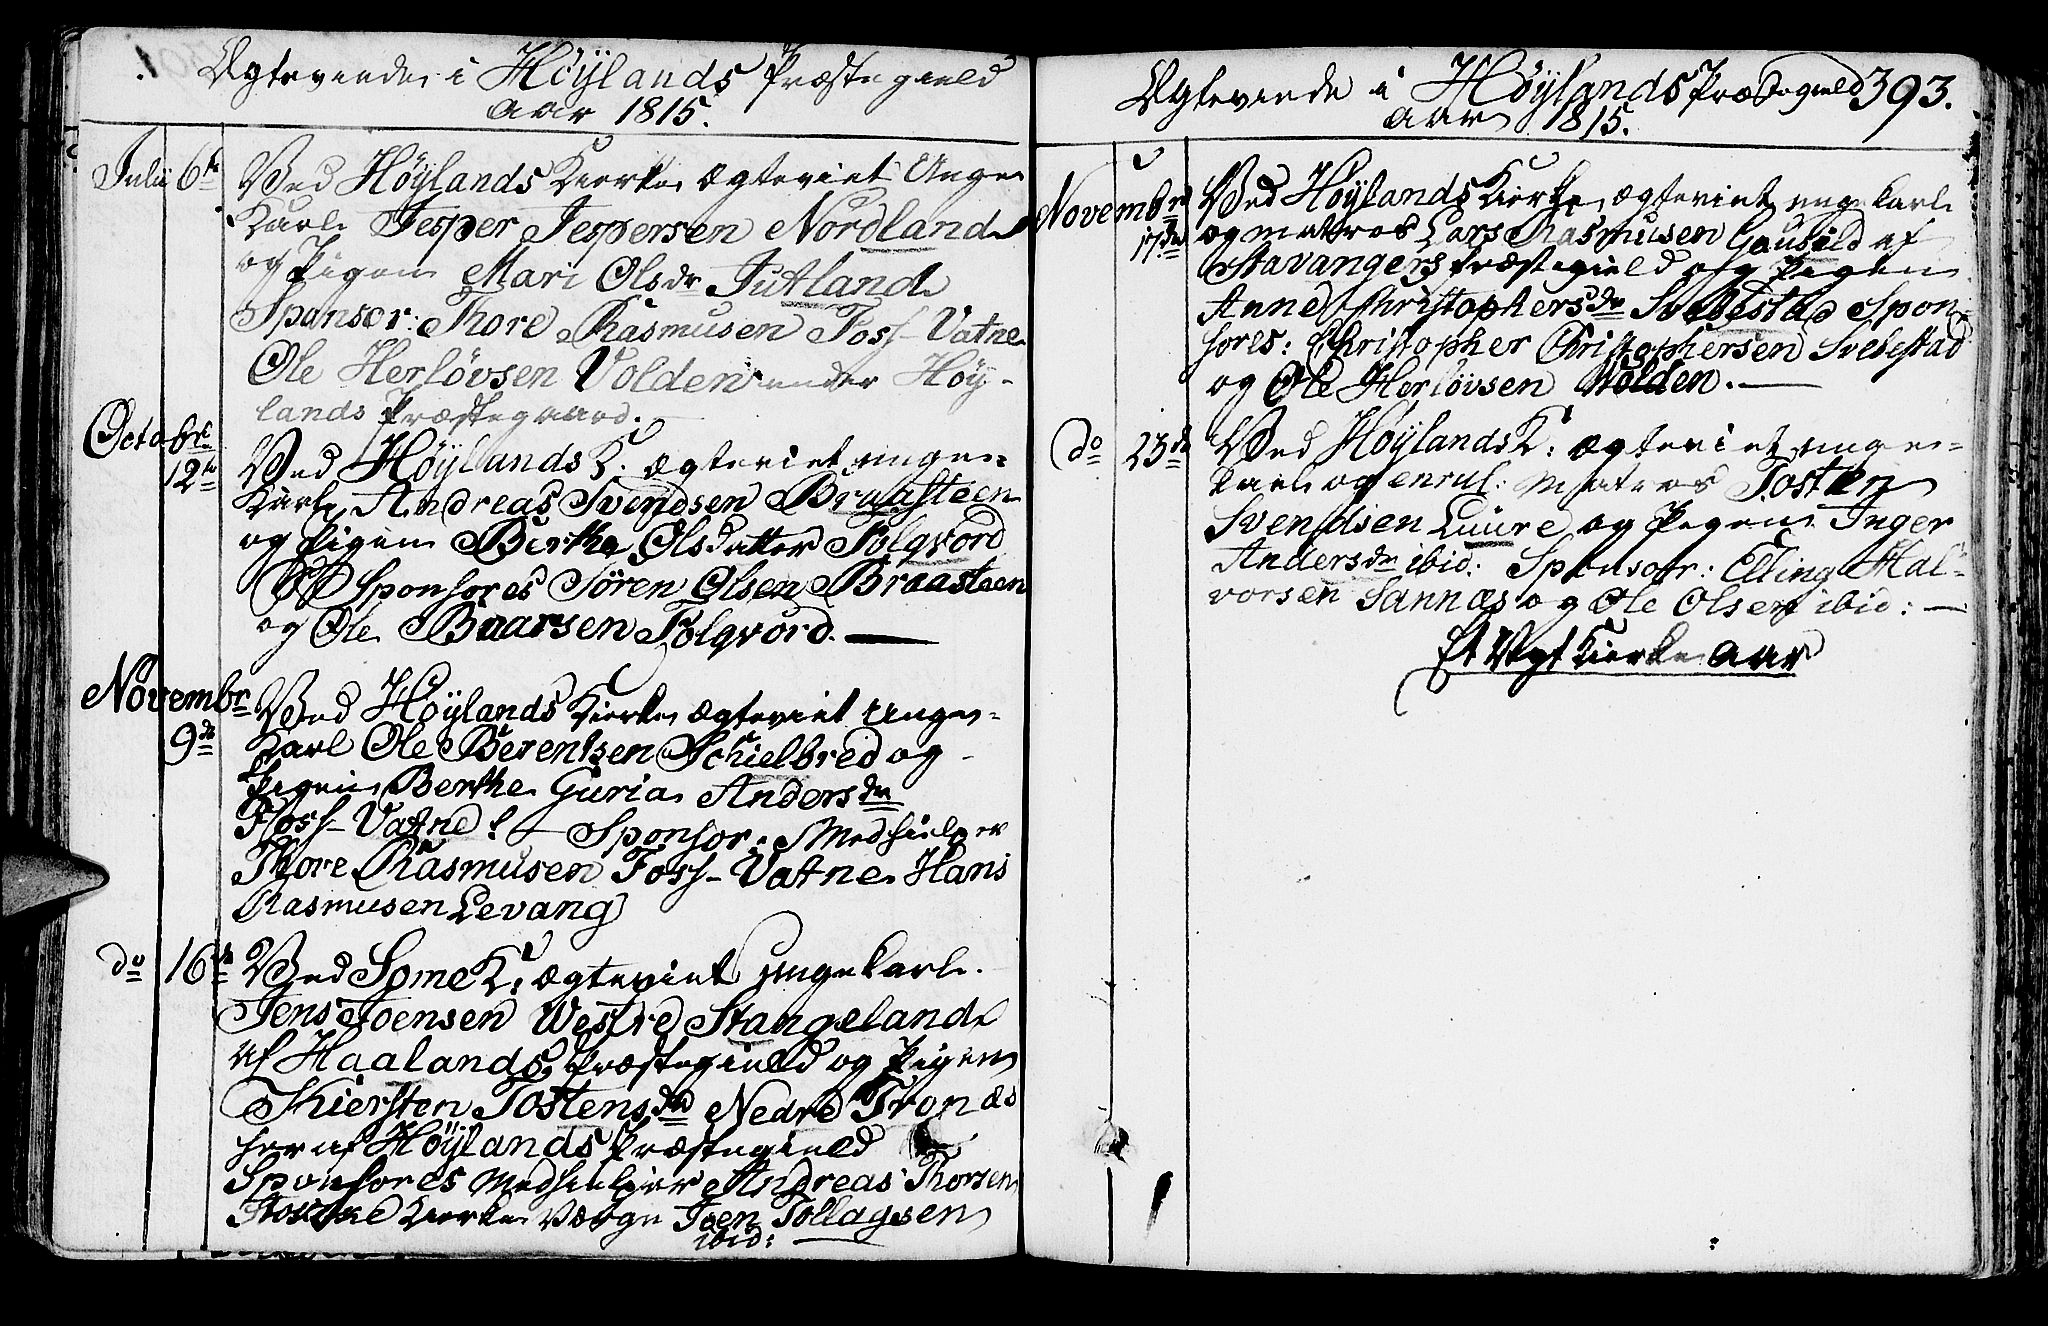 Ægteviede i Höÿlands Præstegield
Aar 1815.
Julii 6te Ved Höÿlands Kierke ægteviet Unge
Karl Jesper Jespersen Nordland
og Pigen Mari Olsdr Jutland
Sponsor: Thore Rasmusen Foss-Vatne
Ole Herlövsen Volden under Höÿ-
lands Præstegaard.
Octobr 12te Ved Höÿlands K: ægteviet unge
Karl Andreas Svendsen Braasteen
og Pigen Birthe Olsdatter Folqvord
Sponsores Sören Olsen Braasteen
og Ole Baarsen Folqvord.
Novembr 9de Ved Höÿlands Kierke ægteviet Unge-
Karl Ole Berentsen Schielbred og
Pigen Berthe Guria Andersdr
Foss-Vatne. Sponsor: Medhielper
Thore Rasmusen Foss-Vatne Hans
Rasmusen Levang
do 16de Ved Some K: ægteviet Unge Karl
Jens Joensen Westre Stangeland
af Haalands Præstegield og Pigen
Thiersten Tostensdr Nedre Tronæs
her af Höÿlands Præstegield
Sponsores Medhielper Andreas Thorsen
Kierke Værge Joen Tollagsen
ibid:
Ægteviede i Höÿlands Præstegield 393.
Aar 1815.
Novembr 17de Ved Höÿlands Kierke ægteviet unge Karl
og Matros Lars Rasmusen Gausæld af
Stavangers Præstegield og Pigen
Anne Christophersdr Svebestad Spon-
sores: Christopher Christophersen Svebestad
og Ole Herlövsen Volden.
do 23de Ved Höÿlands K: ægteviet unge-
Karl og enrul: Matros Tosten
Svendsen Luure og Pigen Inger
Andersdr ibid: Sponsor: Elling Hal-
vorsen Sannæs og Ole Olsen ibid:
Et Nyt Kierke Aar